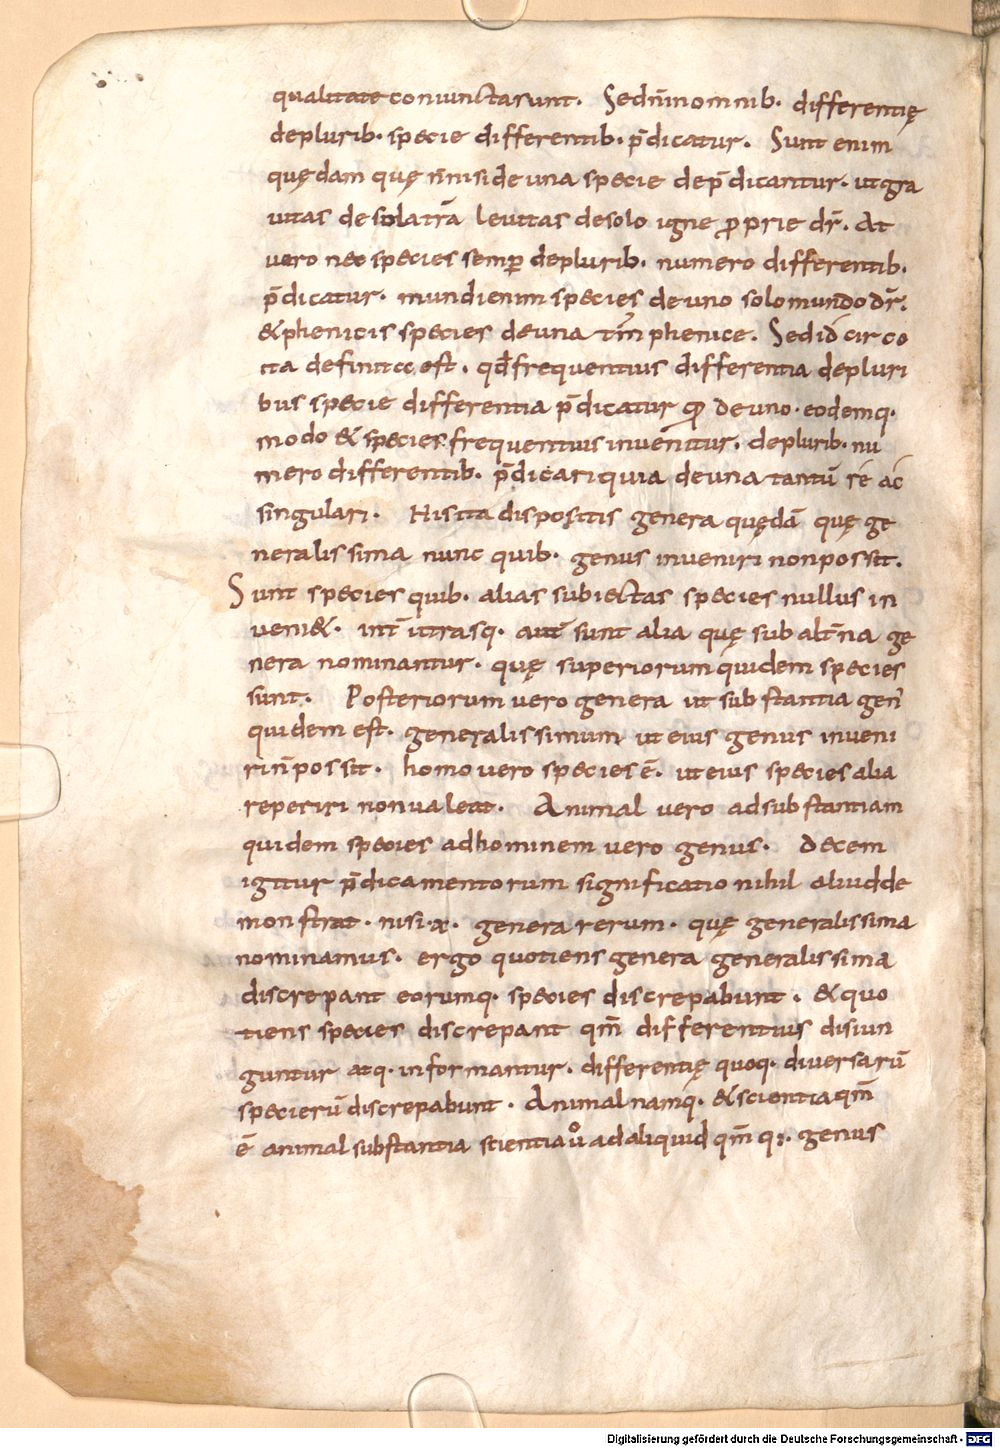 qualitate coniunctasunt. Sed n̄ in omnib. differentię
deplurib. specie differentib. p̄dicatur. Sunt enim
quędam quę n̄ nisi de una specie dep̄dicantur. ut gra
uitas de sola tr̄a leuitas desolo igne proprie dr̄. At
uero nec species semp̲ deplurib. numero differentib.
p̄dicatur. mundi enim species de uno solo mundo dr̄.
&phenicis species deuna tm̄ phenice. Sed id circo
ita definitio est. qđ frequentius differentia depluri
bus specie differentia p̄dicatur deuno. eodemq.
modo & species frequentius inuenitur. depluribː nu
mero differentib. p̄dicari quia deuna tantū re ac
singulari. His ita dispositis genera quędā quę ge
neralissima nunc quib. genus inueniri nonpossit.
Sunt species quib. alias subiectas species nullus in
ueni&. int̄ utrasq. aut̄ sunt alia quę sub alt̄na ge
nera nominantur. quę superiorum quidem species
sunt. Posteriorum vero genera ut substantia gen̄
quidem est. generalissimum ut eius genus inueni
ri n̄ possit. homo vero species ē. ut eius species alia
reperiri nonualeat. Animal vero adsubstantiam
quidem species adhominem uero genus. Decem
igitur p̄dicamentorum significatio nihil aliud de
monstrat. nisi .x. genera rerum. quę generalissima
nominamus. ergo quotiens genera generalissima
discrepant eorumq. species discrepabunt. &quo
tiens species discrepant qm̄ differentiis disiun
guntur atq. informantur. differentię quoq. diversarū
specierū discrepabunt. Animal namq. &scientia qm̄
ē animal substantia scientia ů ad aliquid qm̄ genus